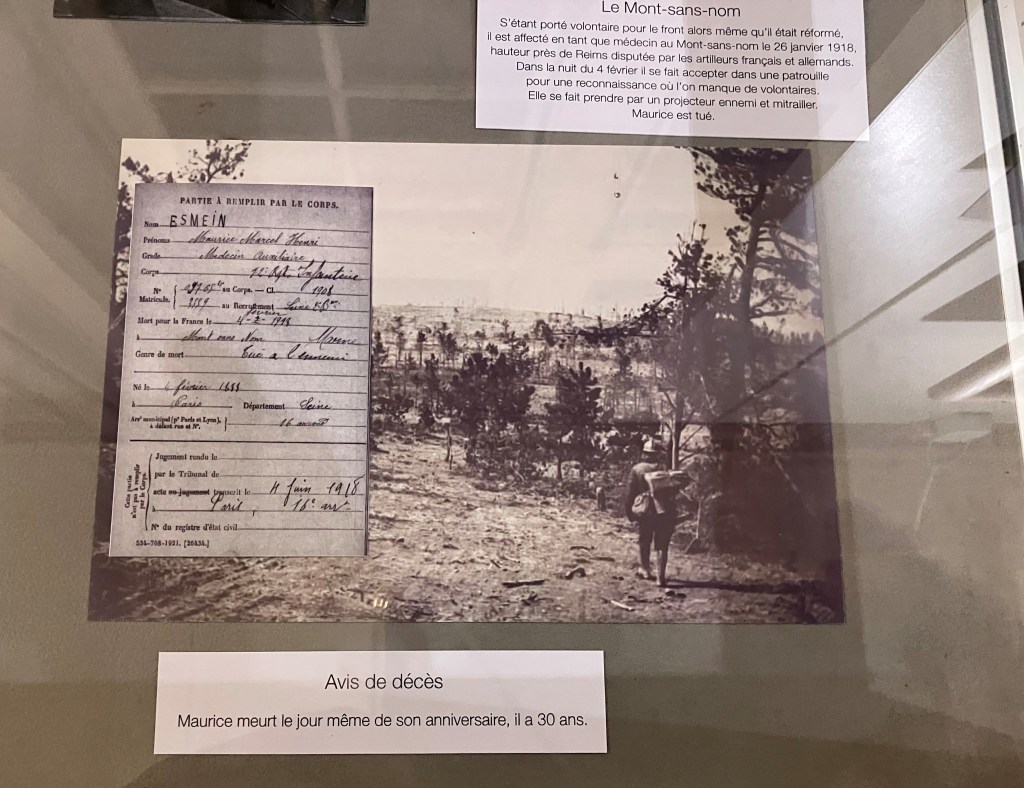 Le Mont-sans-nom
S'étant porté volontaire pour le front alors même qu'il était réformé,
il est affecté en tant que médecin au Mont-sans-nom le 26 janvier 1918,
hauteur près de Reims disputée par les artilleurs français et allemands.
Dans la nuit du 4 février il se fait accepter dans une patrouille
pour une reconnaissance où l'on manque de volontaires.
Elle se fait prendre par un projecteur ennemi et mitrailler.
Maurice est tué.
PARTIE À REMPLIR PAR LE CORPS.
Nom ESMEIN
Prénoms Maurice Marcel Henri
Grade Médecin Auxiliaire
Corps Infanterie
N° au Corps. — Cl. 1908
Matricule. au Recrutement Seine
Mort pour la France le février
4-2-1918
à Mont sans Nom Marne
Genre de mort Tué à l'ennemi
Né le février 1888
à Paris Département Seine
Arrt municipal (pr Paris et Lyon),
à défaut rue et N°. 16
Jugement rendu le
par le Tribunal de
acte ou jugement transcrit le 4 Juin 1918
à Paris, 16e arrt
N° du registre d'état civil
Cette partie
n'est pas à remplir
par le Corps.
534-708-1921. [26434.]
Avis de décès
Maurice meurt le jour même de son anniversaire, il a 30 ans.